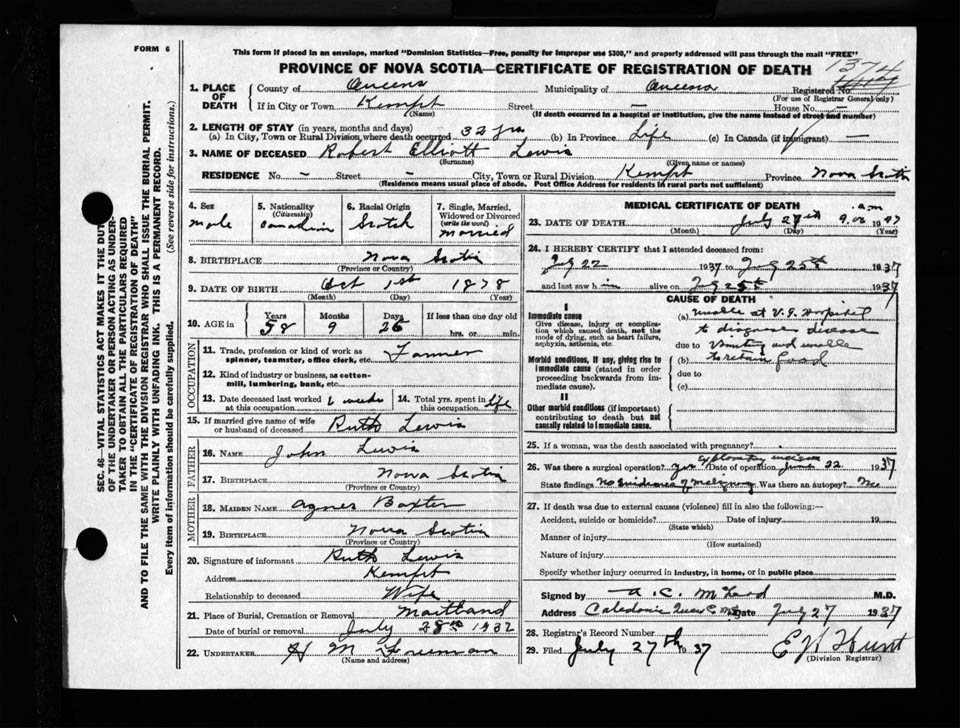 FORM 6
This form if placed in an envelope, marked "Dominion Statistics—Free, penalty for improper use $300," and properly addressed will pass through the mail "FREE"
PROVINCE OF NOVA SCOTIA—CERTIFICATE OF REGISTRATION OF DEATH
1374
1. PLACE OF DEATH County of Queens Municipality of Queens Registered No.
(For use of Registrar General only)
If in City or Town Kempt Street — House No. —
(Name) (If death occurred in a hospital or institution, give the name instead of street and number)
2. LENGTH OF STAY (in years, months and days)
(a) In City, Town or Rural Division, where death occurred 32 yrs (b) In Province Life (c) In Canada (if immigrant) —
3. NAME OF DECEASED Robert Elliott Lewis
(Surname) (Given name or names)
RESIDENCE No. – Street – City, Town or Rural Division Kempt Province Nova Scotia
(Residence means usual place of abode. Post Office Address for residents in rural parts not sufficient)
4. Sex male
5. Nationality (Citizenship) Canadian
6. Racial Origin Scotch
7. Single, Married, Widowed or Divorced (write the word) married
8. BIRTHPLACE Nova Scotia
(Province or Country)
9. DATE OF BIRTH Oct 1st 1878
(Month) (Day) (Year)
10. AGE in Years 58 Months 9 Days 26 If less than one day old
hrs. or min.
OCCUPATION
11. Trade, profession or kind of work as spinner, teamster, office clerk, etc. Farmer
12. Kind of industry or business, as cotton-mill, lumbering, bank, etc.
13. Date deceased last worked at this occupation 6 weeks
14. Total yrs. spent in this occupation life
15. If married give name of wife or husband of deceased Ruth Lewis
FATHER
16. NAME John Lewis
17. BIRTHPLACE Nova Scotia
(Province or Country)
MOTHER
18. MAIDEN NAME Agnes Baxter
19. BIRTHPLACE Nova Scotia
(Province or Country)
20. Signature of informant Ruth Lewis
Address Kempt
Relationship to deceased Wife
21. Place of Burial, Cremation or Removal Maitland
Date of burial or removal July 28th 1932
22. UNDERTAKER H M Freeman
(Name and address)
MEDICAL CERTIFICATE OF DEATH
23. DATE OF DEATH July 27th 9.00 a.m 1937
(Month) (Day) (Year)
24. I HEREBY CERTIFY that I attended deceased from:
July 22 1937 to July 25th 1937
and last saw him alive on July 25th 1937
CAUSE OF DEATH
I
Immediate cause
Give disease, injury or complication which caused death, not the mode of dying, such as heart failure, asphyxia, asthenia, etc.
(a) unable at V.G. Hospital
to diagnose disease
due to Vomiting and unable
Morbid conditions, if any, giving rise to immediate cause (stated in order proceeding backwards from immediate cause).
(b) to retain food
due to
(c)
II
Other morbid conditions (if important) contributing to death but not causally related to immediate cause.
25. If a woman, was the death associated with pregnancy?
26. Was there a surgical operation? yes Exploratory incision Date of operation June 22 1937
State findings No evidence of Was there an autopsy? No
27. If death was due to external causes (violence) fill in also the following:—
Accident, suicide or homicide? Date of injury 19
(State which)
Manner of injury
(How sustained)
Nature of injury
Specify whether injury occurred in industry, in home, or in public place
Signed by A. C. M. D.
Address Caledonia Queens Co. Date July 27 1937
28. Registrar's Record Number
29. Filed July 27th 1937 E H Hunt
(Division Registrar)
SEC. 46—VITAL STATISTICS ACT MAKES IT THE DUTY
OF THE UNDERTAKER OR PERSON ACTING AS UNDER-
TAKER TO OBTAIN ALL THE PARTICULARS REQUIRED
IN THE "CERTIFICATE OF REGISTRATION OF DEATH"
AND TO FILE THE SAME WITH THE DIVISION REGISTRAR WHO SHALL ISSUE THE BURIAL PERMIT.
WRITE PLAINLY WITH UNFADING INK. THIS IS A PERMANENT RECORD.
Every item of information should be carefully supplied. (See reverse side for instructions.)